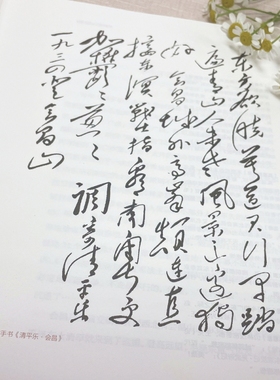 东方欲晓莫道君行早踏
遍青山人未老风景这边独
好会昌城外高峰颠连直
接东溟战士指看南粤更
加郁々葱々 调寄清平乐
一九三四 登会昌山
手书《清平乐·会昌》